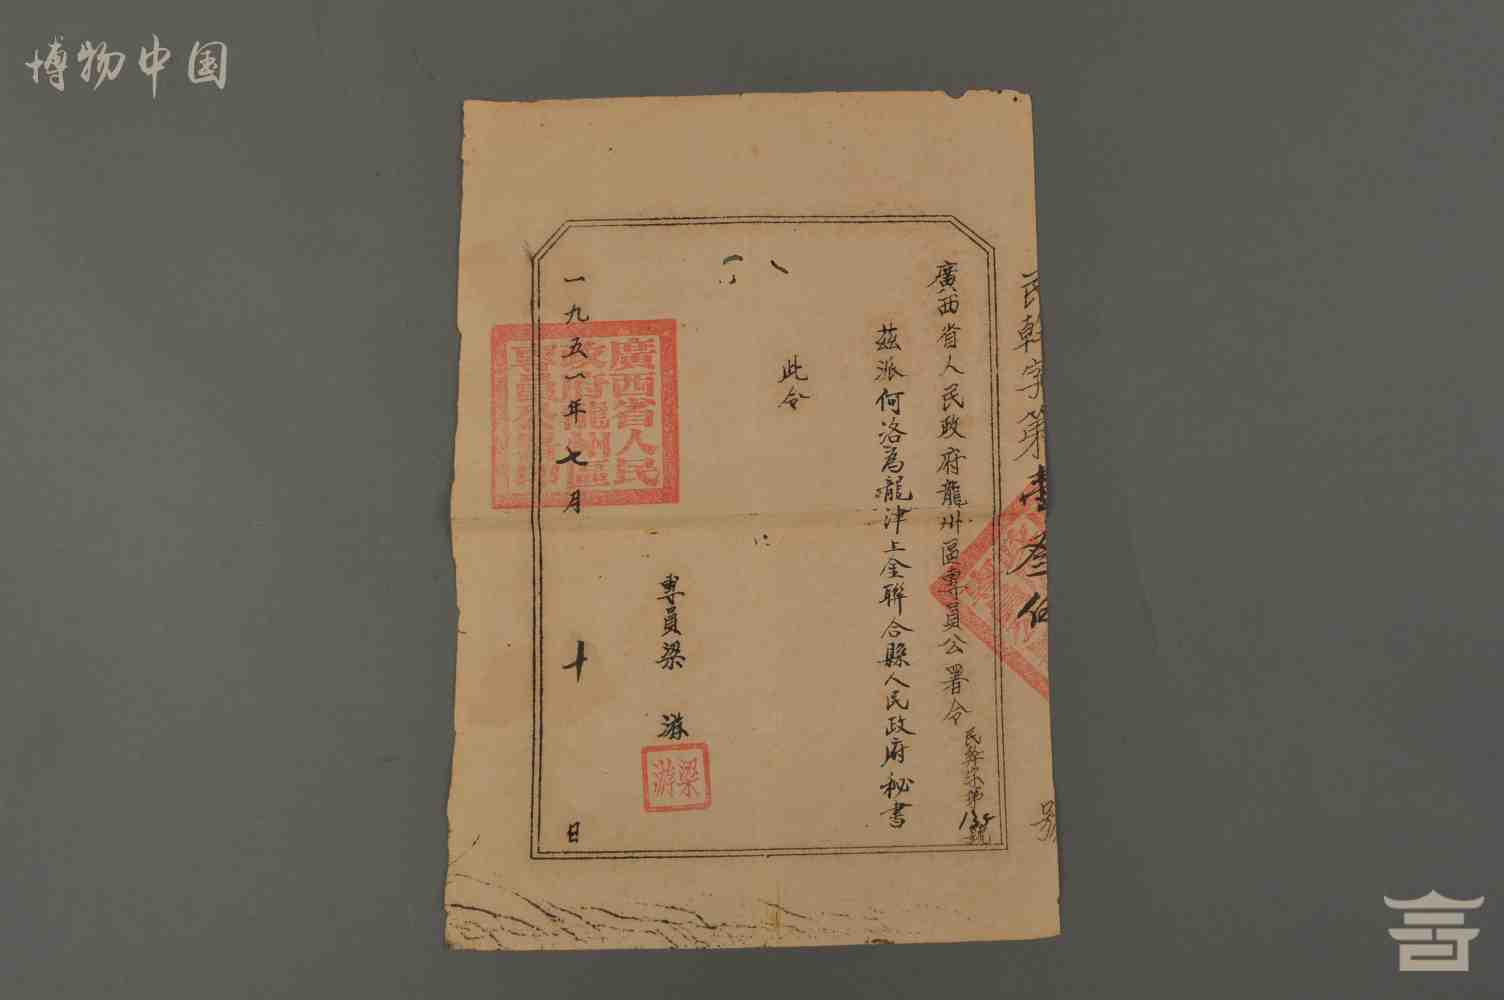 博物中国
民幹字第壹叁伍號
廣西省人民政府龍州區專員公署令
民幹字第135號
茲派何洛為龍津上金聯合縣人民政府秘書
此令
專員梁游
梁游
一九五一年七月十日
廣西省人民
政府龍州區
專員公署印